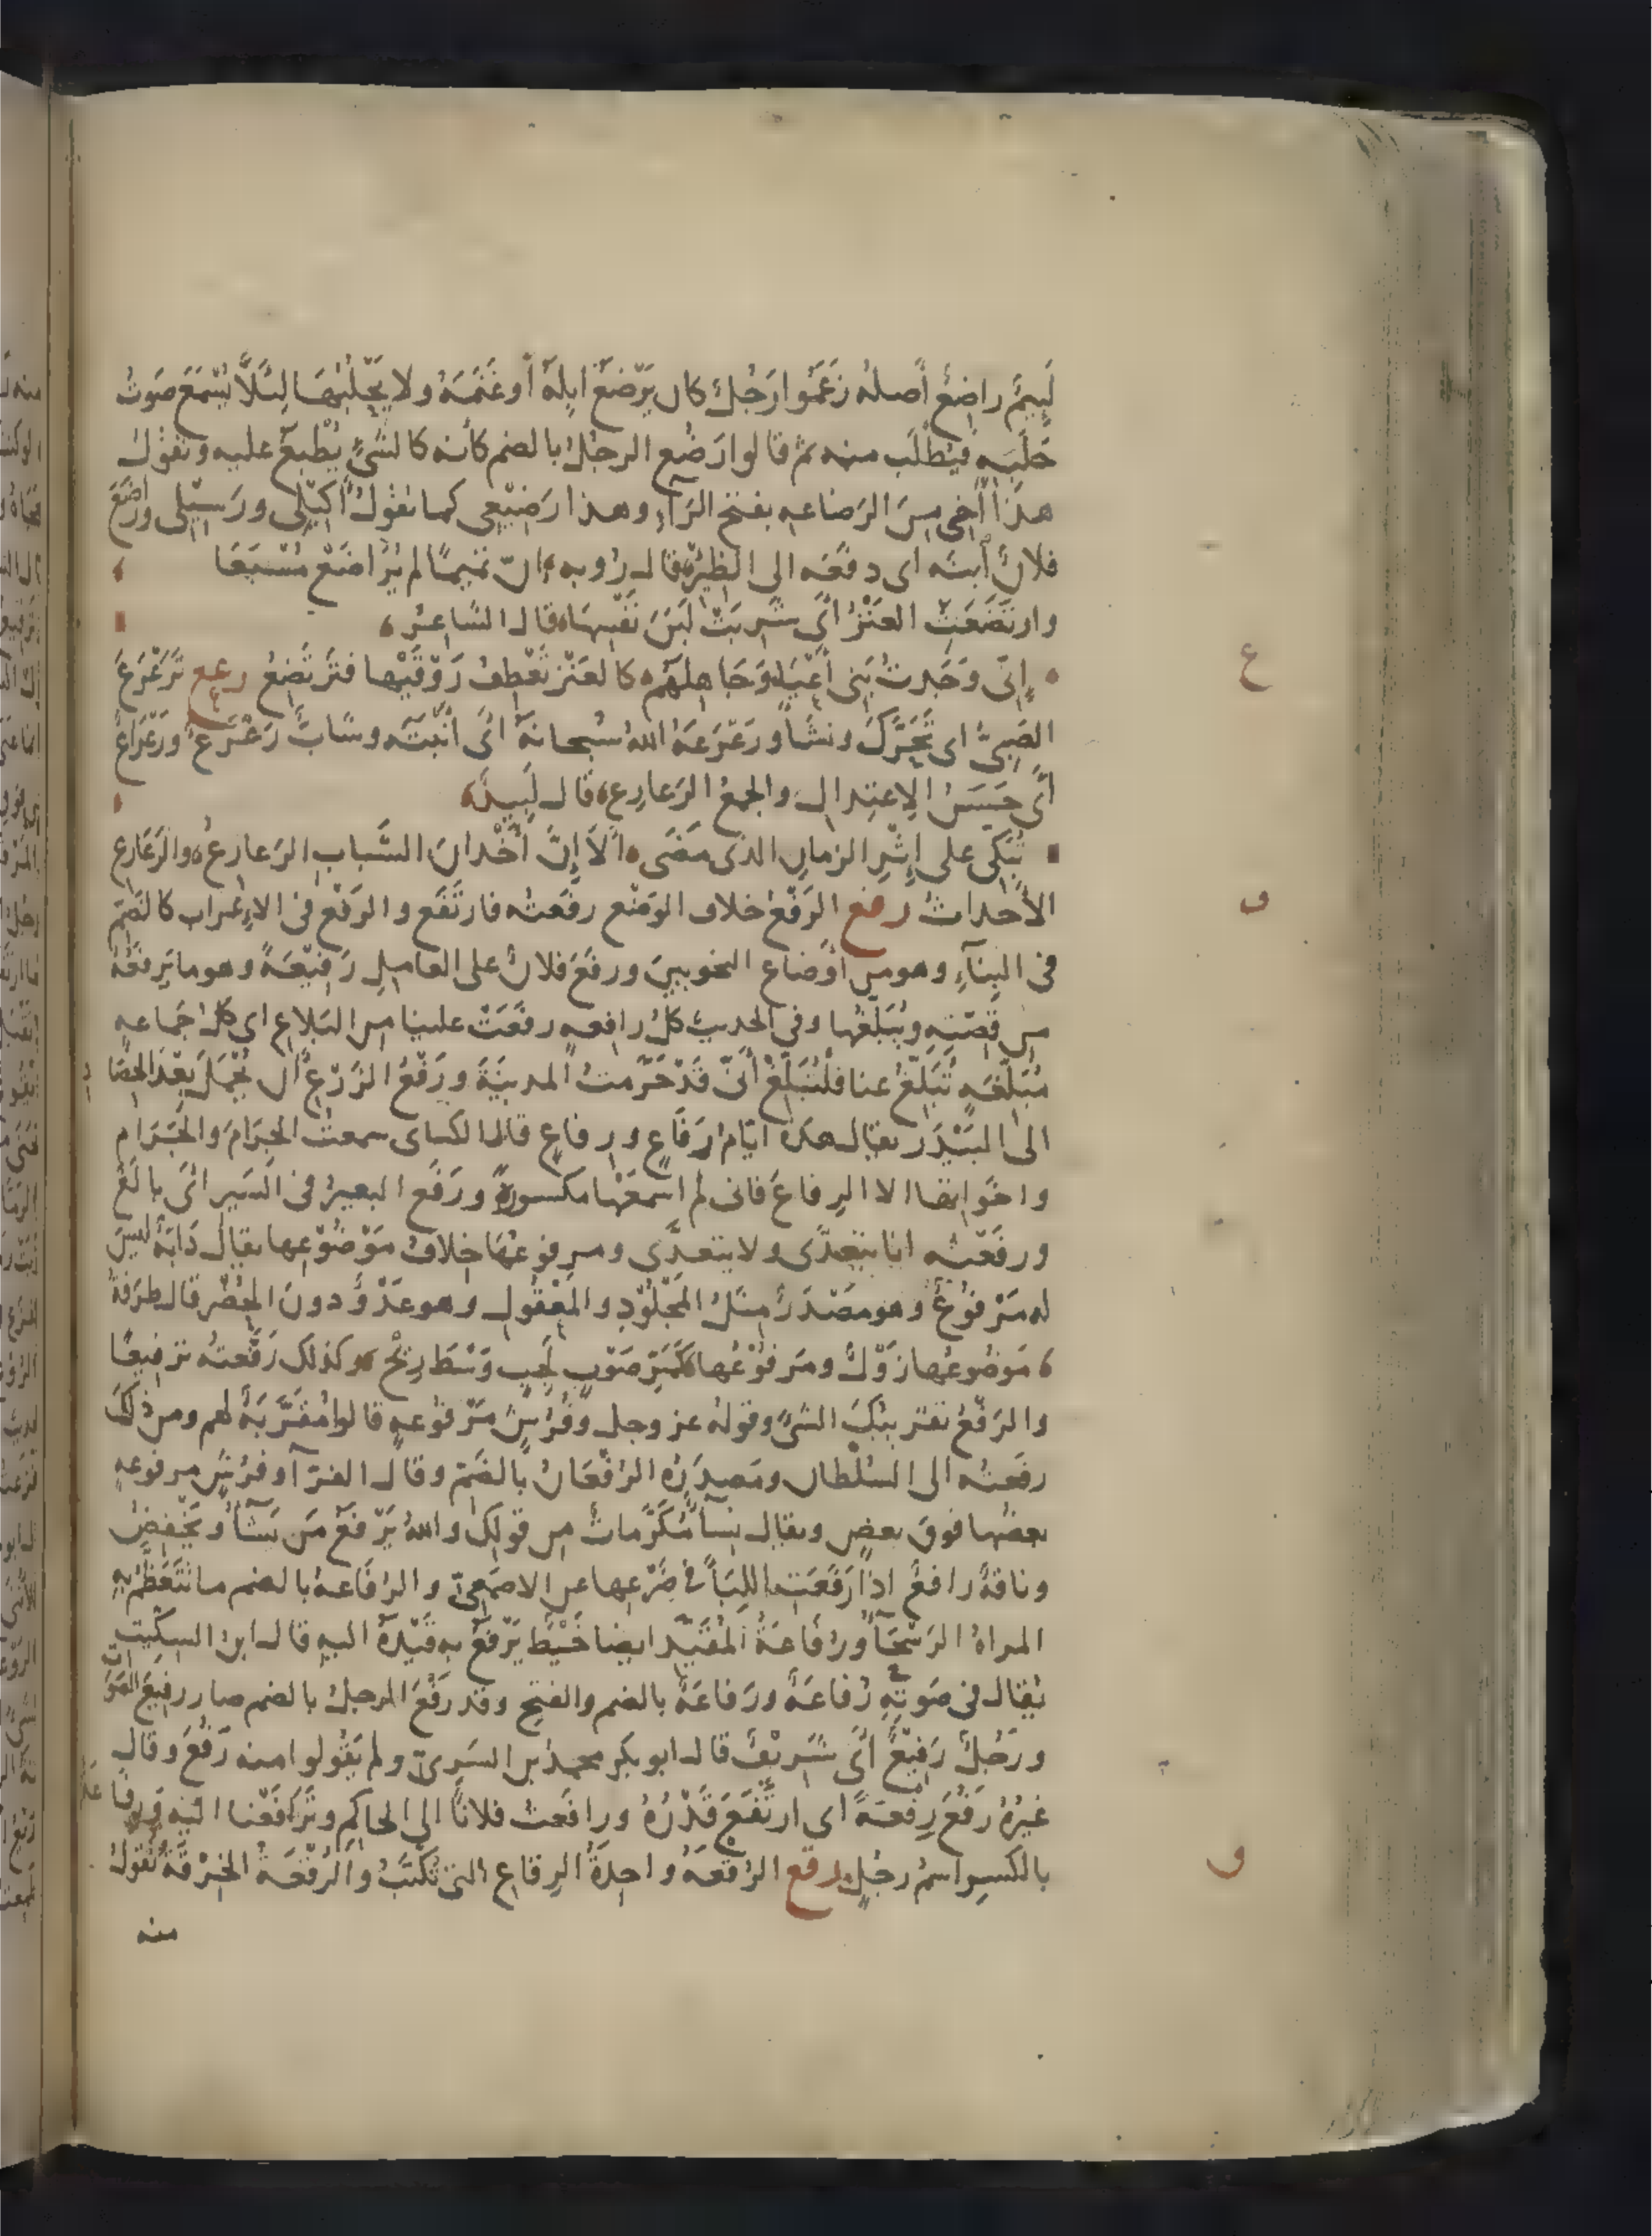 لَئِيمٌ راضِعٌ أصله زَعَمُوا رَجُلٌ كان يَرْضَعُ ابِلَهُ أو غَنَمَهُ ولا يَحْلُبُهَا لِئَلَّا يُسْمَعَ صَوتُ
حَلَبِهِ فيُطْلَب منه ثم قالوا رَضُع الرجلُ بالضم كأنه كالشئ يُطْبَعُ عليه وتقول
هذا أخى مِنَ الرَضاعه بفتح الرَآءِ وهذا رَضِيْعى كما تقولُ أكِيْلِى ورَسِيْلى وارْضَعَ
فلانٌ ابنَه اى دفَعَه الى الظِئْرِ قال رُوبه انّ تميمًا لم يُرَاضَعْ مُسْبَعَا
وارتَضَعَتْ العَنْزُ أى شَرِبَتْ لَبَنَ نَفْسِهَا قال الشاعر
إنى وَجَدتُ بَنى أعْيَا وَجَاهِلَهُم كالعَنْزِ تَعْطِفُ رَوْقَيْها فتَرتَضِعُ رعع تَرَعْرَعَ
الصَبِىُّ اى تَحَرَّكَ ونشَأ ورَعْرَعَهُ اللهُ سُبحانهُ أى أنْبَتَه وشَابٌّ رَعْرَعٌ ورَعْرَاعٌ
أى حَسَنُ الاِعتِدالِ والجمعُ الرَعارِع قال لَبِيدٌ
تُبَكِّى على إثْرِ الزمانِ الذى مَضَى ألَا إنَّ أخْدانَ الشَّبابِ الرَعارعُ والرَعَارع
الأحداثُ رفع الرَفْعُ خلاف الوَضْع رفَعتُه فارتَفَع والرَفْع فى الاِعْراب كالضَمّ
فى البِنآءِ وهو من أوْضاع النحويين ورفَعَ فلانٌ على العامِلِ رَفِيْعَةً وهو ما يَرفَعُهُ
من قِصّتِهِ ويُبَلّغُها وفى الحديث كلُ رافعه رفَعَتْ علينا من البَلاغ اى كل جَماعه
مُبَلِّغَه تُبَلِّغُ عنا فلْتُبَلِّغْ أنّى قَدْ حَرَّمتُ المدينَةَ ورَفْعُ الزَرْعِ أن يُحْمَلَ بَعْدَ الحَصَاد
الى البَيْدَر يقال هذه ايّام رَفَاعٍ ورِفاعٍ قال الكساى سمعتُ الجَرَامَ والجِرَام
واخَواتها الا الرِفاعَ فانى لم اسْمَعْها مكسورة ورَفَع البعيرُ فى السَير أى بالَغَ
ورفَعْتُه انا يتعدَّى ولا يتعدَّى ومرفوعُهَا خلافُ مَوْضُوْعِها يقال دَابّةٌ ليسَ
له مَرْفوْعٌ وهو مَصْدَرٌ مثلُ المَجْلُوْدِ والمَعْقُولِ وهو عَدْوٌ دون الحُضْرِ قال طرَفهُ
مَوضُوعُها زَوْلٌ ومَرفُوْعُها كَمَرِّ صَوْبٍ لَجِبٍ وَسْطَ رِيْحْ وكذلك رَفَّعتُه تَرفيعًا
والرَفْعُ تقريبُكَ الشئَ وقولهُ عز وجل وفُرُشٍ مَرْفوْعهٍ قالوا مُقَرَّبَةٌ لهم ومن ذلكَ
رفَعتُه الى السُلْطانِ ومَصدَرُهُ الرُفْعَانُ بالضَمّ وقال الفرّآ وفرُشٍ مرفوعهٍ
بعضُها فوقَ بعضٍ ويقال نِسآءٌ مُكَرَّماتٌ من قولِكَ واللهُ يَرْفعُ مَن يَشآءُ ويَخْفِضُ
وناقةٌ رافعٌ اذا رَفَعَتِ اللِبَأَ فى ضَرْعِها عن الاصمَعِىّ والرُفَاعهُ بالضم ما تَتَعَظَّمُ بِه
المراةُ الرَسْحَآءُ ورُفَاعَةُ المُقَيَّدِ ايضا خَيْطٌ يَرْفعُ به قَيْدَهُ اليهِ قال ابنُ السِكّيتِ
يُقال فى صَوتِهِ رُفاعَةٌ ورَفاعَةٌ بالضم والفتح وقد رَفُعَ الرجلُ بالضم صار رفِيعَ الصَوت
ورَجُلٌ رَفِيْعٌ أى شَرِيْفٌ قال ابو بكر محمد بن السَرِىّ ولم يَقُولوا منه رَفُعَ وقال
غيرُهُ رَفُعَ رِفْعَةً اى ارتَفَعَ قَدْرُهُ ورافَعتُ فلاناً الى الحاكِمِ وتَرَافَعْنا اليْهِ ورِفاعَةُ
بالكسرِ اسمُ رجُلٍ رقع الرُقْعَهُ واحِدَةُ الرِقاعِ التى تُكْتَبُ والرُقْعَةُ الخِرْقَةُ تقولُ
منه